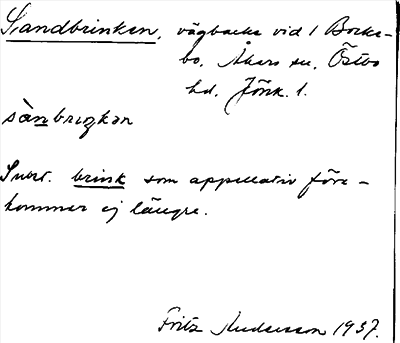 Sandbrinken, vägbacke vid 1 Backe-
bo, Åkers sn, Östbo
hd, Jönk. l.
sànbriŋkən
Subst. brink som appellativ före-
kommer ej längre.
Fritz Andersson 1937.